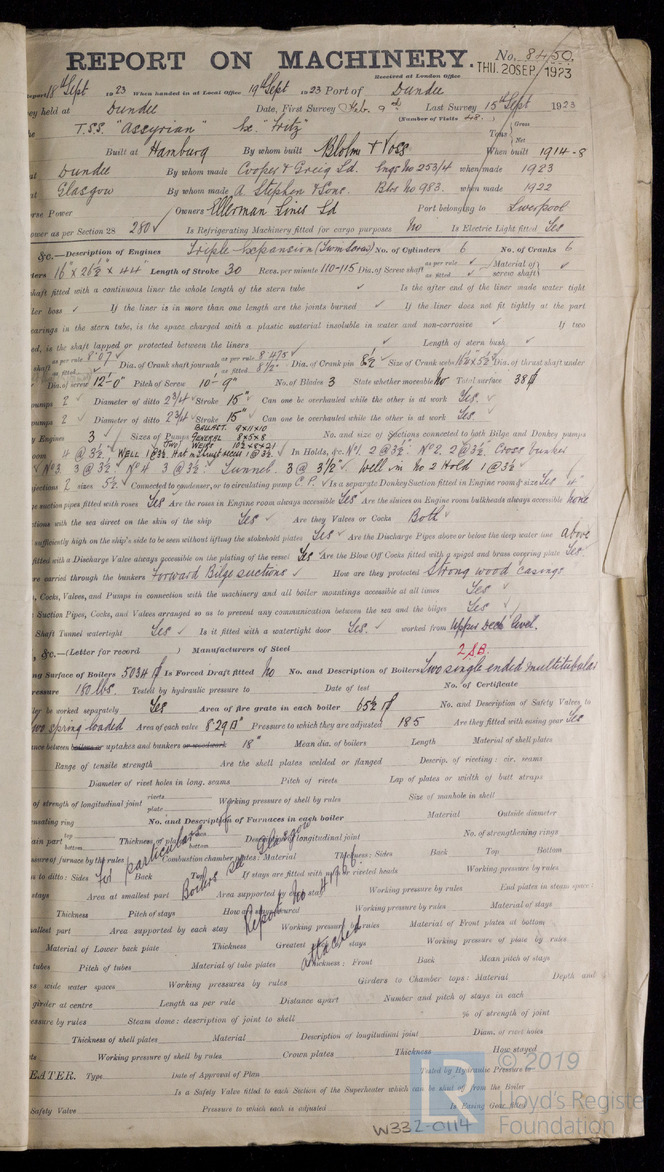 REPORT ON MACHINERY. No. 8450.
Received at London Office THU. 20 SEP 1923
Report 18th Sept 1923 When handed in at Local Office 19th Sept 1923 Port of Dundee
ey held at Dundee Date, First Survey Feb. 9th Last Survey 15th Sept 1923
(Number of Visits 48.)
T.S.S. "Assyrian" Ex "Fritz" Tons Gross Net
Built at Hamburg By whom built Blohm & Voss When built 1914-8
at Dundee By whom made Cooper & Greig Ld. Engs No 253/4 when made 1923
at Glasgow By whom made A Stephen & Sons. Blrs No 983. when made 1922
rse Power Owners Ellerman Lines Ld Port belonging to Liverpool
ower as per Section 28 280 Is Refrigerating Machinery fitted for cargo purposes No Is Electric Light fitted Yes
&c.—Description of Engines Triple Expansion (Twin Screw) No. of Cylinders 6 No. of Cranks 6
ders 16" x 26½" x 44" Length of Stroke 30 Revs. per minute 110-115 Dia. of Screw shaft as per rule as fitted Material of screw shaft
shaft fitted with a continuous liner the whole length of the stern tube Is the after end of the liner made water tight
ler boss If the liner is in more than one length are the joints burned If the liner does not fit tightly at the part
earings in the stern tube, is the space charged with a plastic material insoluble in water and non-corrosive If two
ed, is the shaft lapped or protected between the liners Length of stern bush
shaft as per rule 8.07 as fitted Dia. of Crank shaft journals as per rule 8.475 as fitted 8½" Dia. of Crank pin 8½ Size of Crank webs 16½ x 5½ Dia. of thrust shaft under
Dia. of screw 12'-0" Pitch of Screw 10-9" No. of Blades 3 State whether moveable No Total surface 38
pumps 2 Diameter of ditto 2¾ Stroke 15" Can one be overhauled while the other is at work Yes.
pumps 2 Diameter of ditto 2¾ Stroke 15" Can one be overhauled while the other is at work Yes
y Engines 3 Sizes of Pumps BALLAST 9x11x10 GENERAL 8x5x8 (TWO) WEIRS 10½x8x21 No. and size of Suctions connected to both Bilge and Donkey pumps
oom 4 @ 3½" WELL 1 @ 3½ 1 @ 3½ In Holds, &c. No 1. 2 @ 3½. No 2. 2 @ 3½. Cross bunker
No 3 3 @ 3½ No 4 3 @ 3½ Tunnel. 3 @ 3½" Well in No 2 Hold 1 @ 3½
jections 2 sizes 5½ Connected to condenser, or to circulating pump C.P. Is a separate Donkey Suction fitted in Engine room & size Yes 4"
ge suction pipes fitted with roses Yes Are the roses in Engine room always accessible Yes Are the sluices on Engine room bulkheads always accessible None
ctions with the sea direct on the skin of the ship Yes Are they Valves or Cocks Both
sufficiently high on the ship's side to be seen without lifting the stokehold plates Yes Are the Discharge Pipes above or below the deep water line above
fitted with a Discharge Valve always accessible on the plating of the vessel Yes Are the Blow Off Cocks fitted with a spigot and brass covering plate Yes
re carried through the bunkers Forward Bilge suctions How are they protected Strong wood casings
, Cocks, Valves, and Pumps in connection with the machinery and all boiler mountings accessible at all times Yes
Suction Pipes, Cocks, and Valves arranged so as to prevent any communication between the sea and the bilges Yes
Shaft Tunnel watertight Yes Is it fitted with a watertight door Yes. worked from Upper Deck level.
, &c.—(Letter for record ) Manufacturers of Steel 2 SB.
ng Surface of Boilers 5034 Is Forced Draft fitted No No. and Description of Boilers Two single ended multitubular
ressure 180 lbs. Tested by hydraulic pressure to Date of test No. of Certificate
ler be worked separately Yes Area of fire grate in each boiler 65½ No. and Description of Safety Valves to
two spring loaded Area of each valve 8.29 Pressure to which they are adjusted 185 Are they fitted with easing gear Yes
ance between boilers or uptakes and bunkers or woodwork 18" Mean dia. of boilers Length Material of shell plates
Range of tensile strength Are the shell plates welded or flanged Descrip. of riveting: cir. seams
Diameter of rivet holes in long. seams Pitch of rivets Lap of plates or width of butt straps
of strength of longitudinal joint rivets plate Working pressure of shell by rules Size of manhole in shell
ensating ring No. and Description of Furnaces in each boiler Material Outside diameter
ain part top bottom Thickness of plates bottom Description of longitudinal joint No. of strengthening rings
essure of furnace by the rules Combustion chamber plates: Material Thickness: Sides Back Top Bottom
s to ditto: Sides Back Top If stays are fitted with nuts or riveted heads Working pressure by rules
stays Area at smallest part Area supported by each stay Working pressure by rules End plates in steam space:
Thickness Pitch of stays How are stays secured Working pressure by rules Material of stays
mallest part Area supported by each stay Working pressure by rules Material of Front plates at bottom
Material of Lower back plate Thickness Greatest stays Working pressure of plate by rules
tubes Pitch of tubes Material of tube plates Thickness: Front Back Mean pitch of stays
s wide water spaces Working pressures by rules Girders to Chamber tops: Material Depth and
girder at centre Length as per rule Distance apart Number and pitch of stays in each
essure by rules Steam dome: description of joint to shell % of strength of joint
Thickness of shell plates Material Description of longitudinal joint Diam. of rivet holes
ts Working pressure of shell by rules Crown plates Thickness How stayed
For particulars of
Boilers see Glasgow
Report No 41926.
attached
EATER. Type Date of Approval of Plan Tested by Hydraulic Pressure to
Is a Safety Valve fitted to each Section of the Superheater which can be shut off from the Boiler
Safety Valve Pressure to which each is adjusted Is Easing Gear fitted
W332-0114
© 2019
LR
Lloyd's Register
Foundation